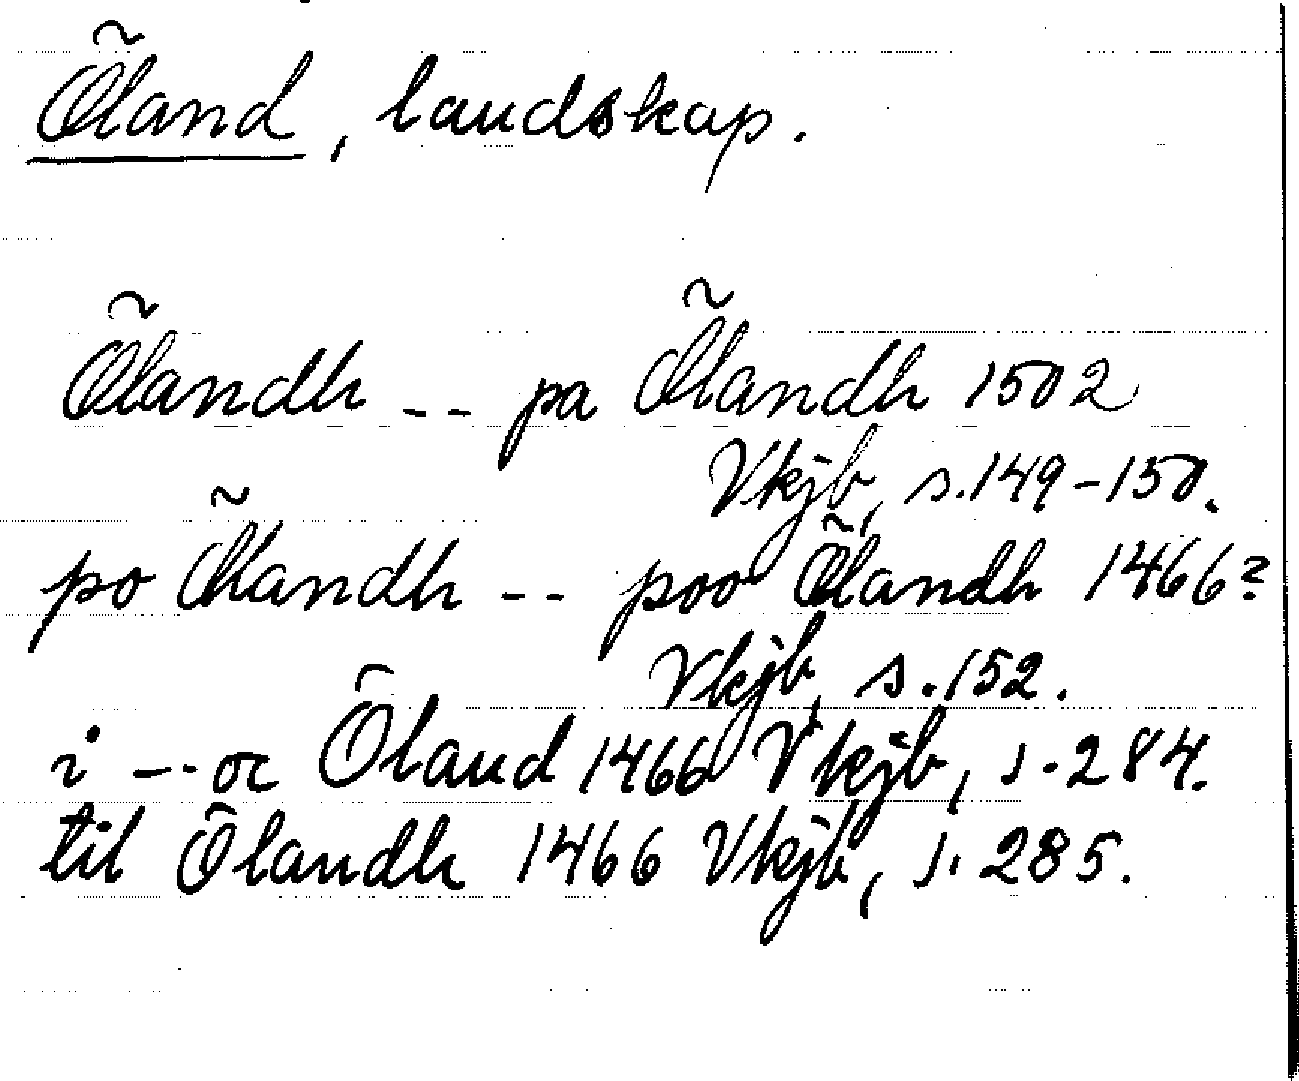 Öland, landskap.
Ölandh -- pa Ölandh 1502
Vkjb, s. 149-150.
po Ölandh -- poo Ölandh 1466?
Vkjb, s. 152.
i -- oc Öland 1466 Vkjb, s. 284.
til Ölandh 1466 Vkjb, s. 285.